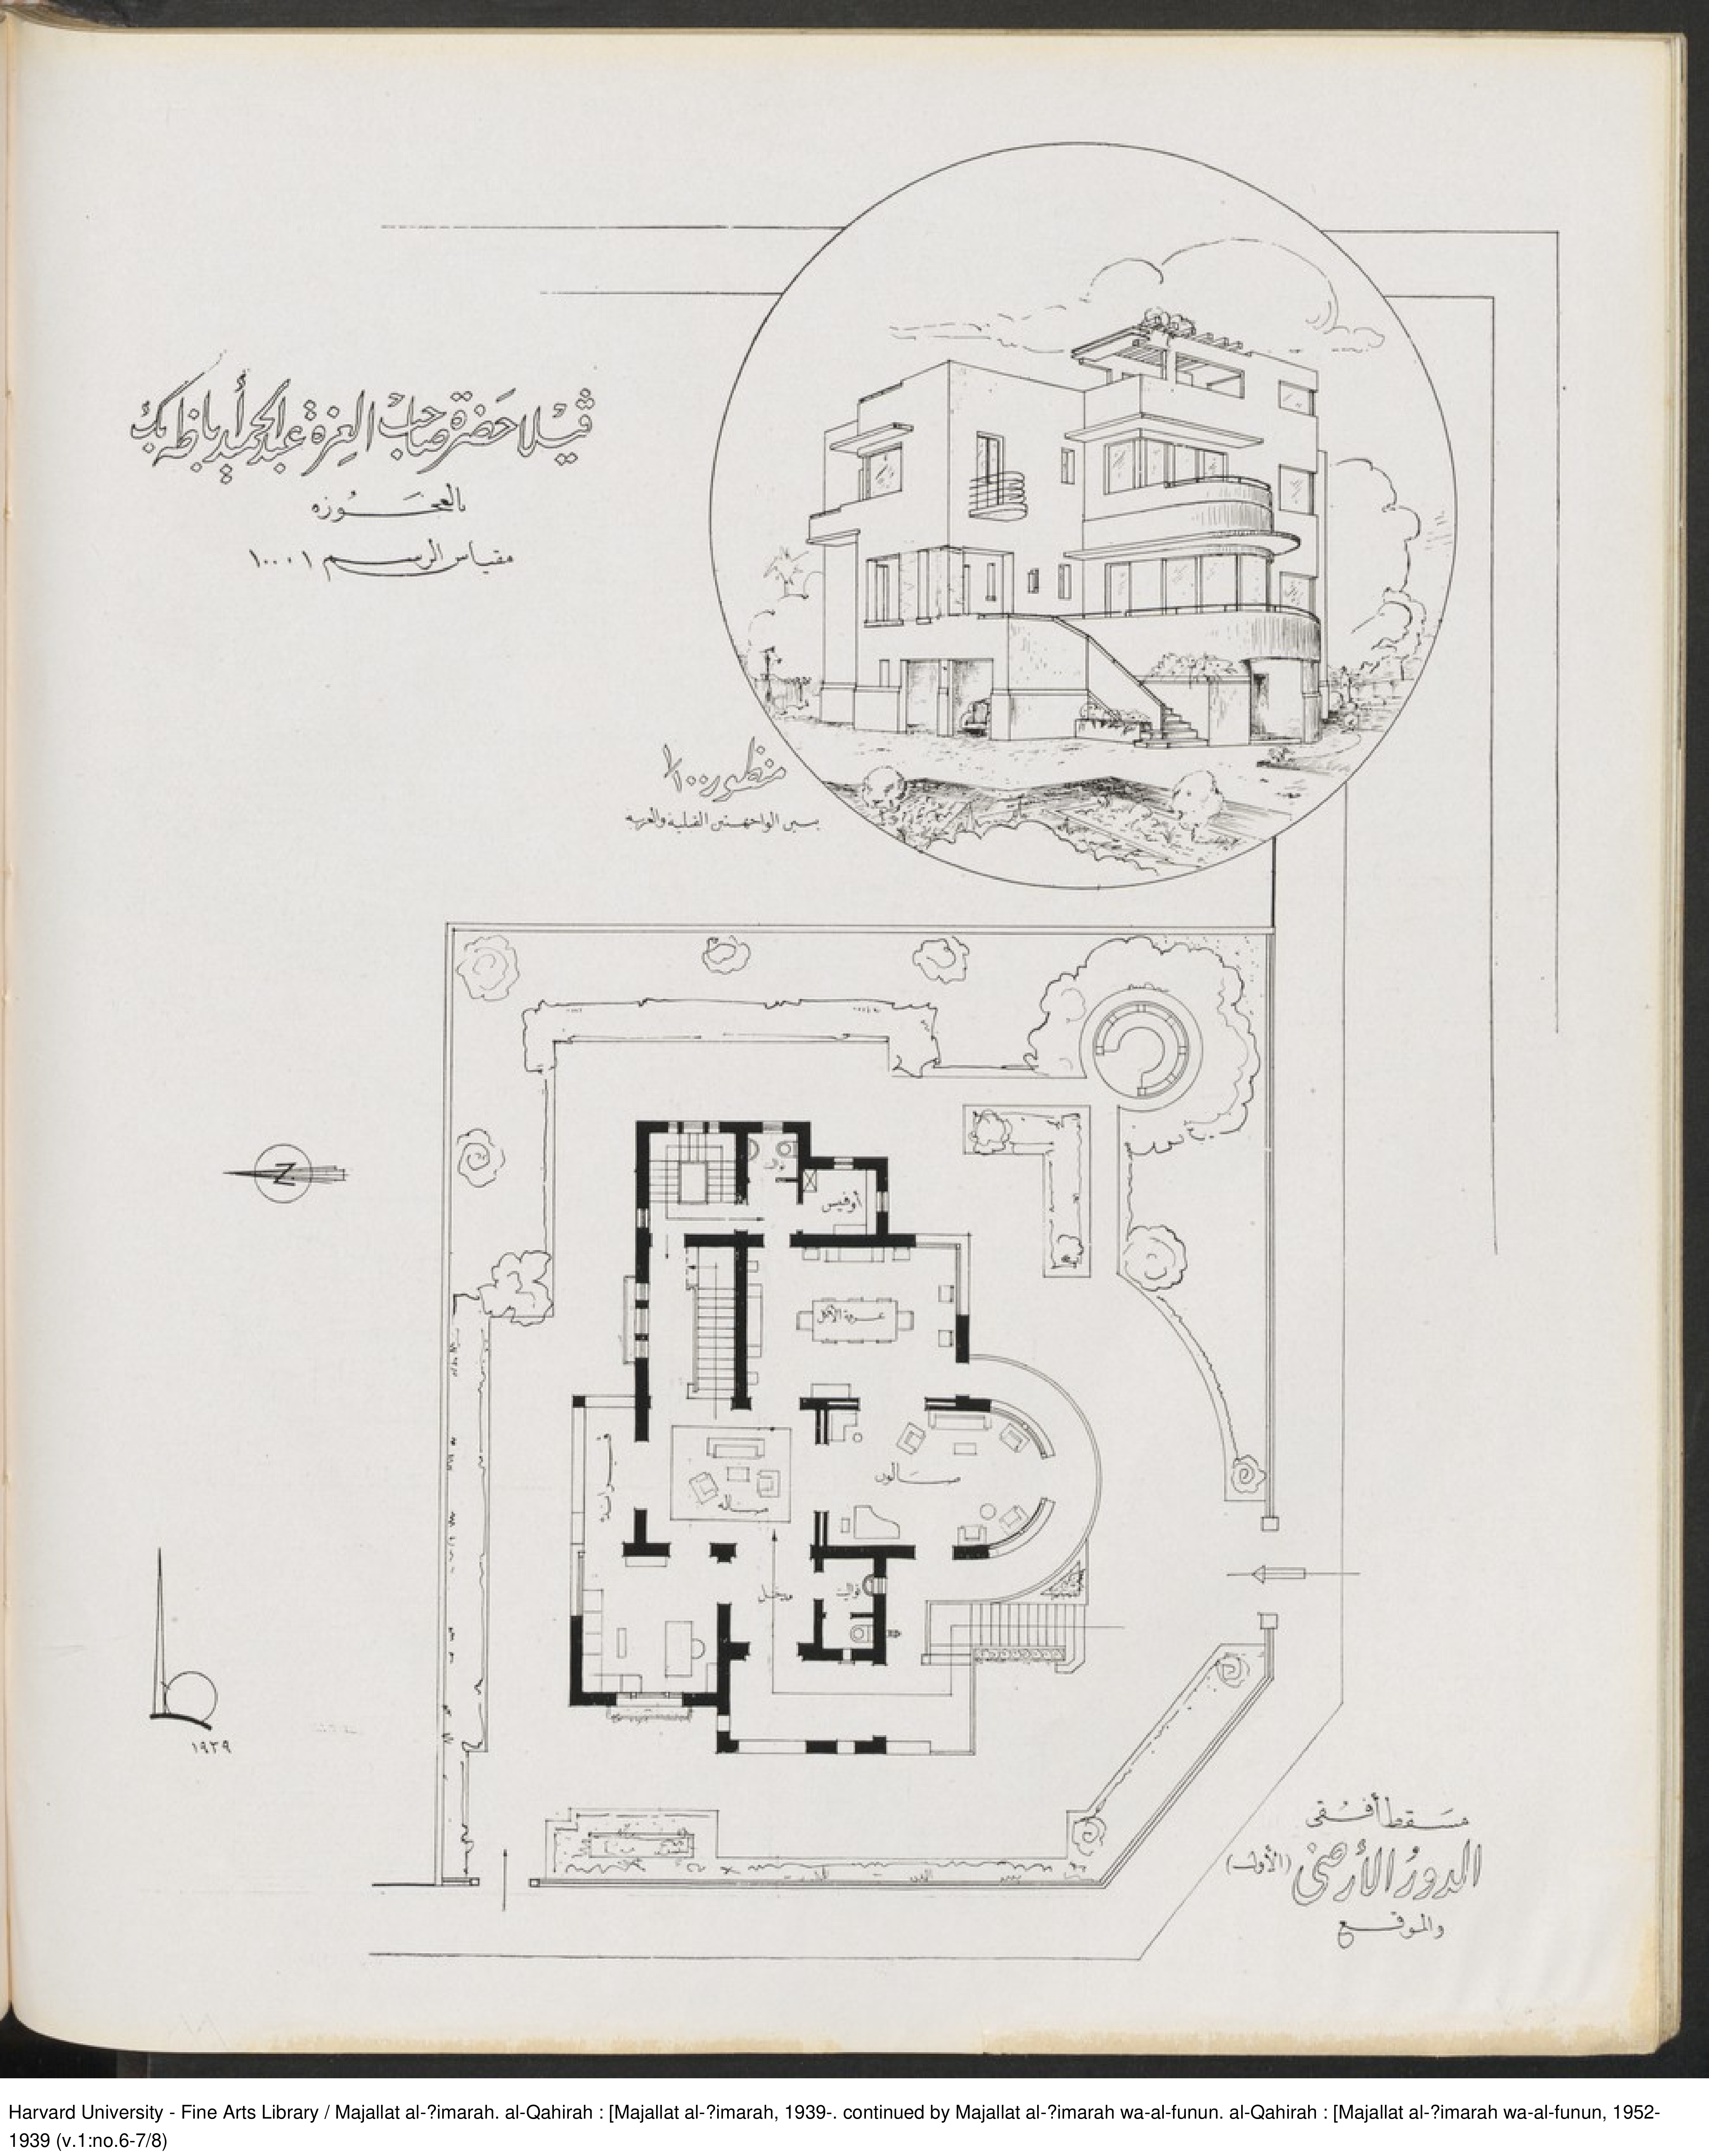 ڤيلا حضرة صاحب العزة عبد الحميد أباظه بك
بالعجوزه
مقياس الرسم ١٠٠٠١
منظور ١/١٠٠
بين الواجهتين القبلية والغربية
N
أوفيس
غرفة الأكل
صالون
صاله
ڤراندة
مدخل
تواليت
١٩٣٩
مسقط أفقى
الدور الأرضى (الأول)
والموقع
Harvard University - Fine Arts Library / Majallat al-?imarah. al-Qahirah : [Majallat al-?imarah, 1939-. continued by Majallat al-?imarah wa-al-funun. al-Qahirah : [Majallat al-?imarah wa-al-funun, 1952-
1939 (v.1:no.6-7/8)